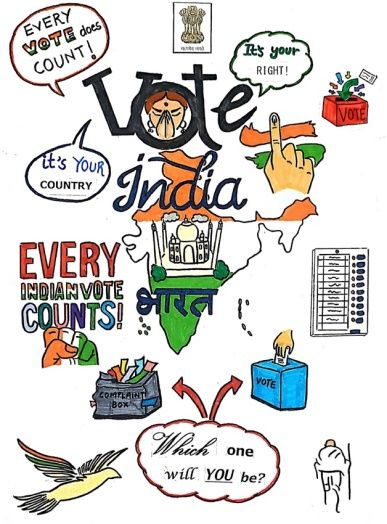 EVERY
VOTE does
COUNT!
It's your
RIGHT!
Vote
VOTE
it's YOUR
COUNTRY
india
EVERY
INDIAN VOTE
COUNTS!
भारत
COMPLAINT
BOX
VOTE
Which one
will YOU be?